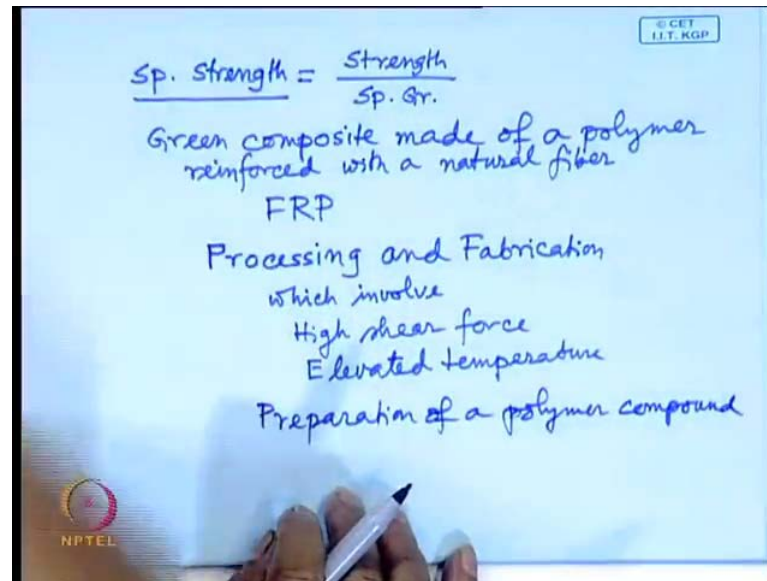 © CET
I.I.T. KGP
Sp. Strength = Strength
Sp. Gr.
Green composite made of a polymer
reinforced with a natural fiber
FRP
Processing and Fabrication
which involve
High shear force
Elevated temperature
Preparation of a polymer compound
NPTEL